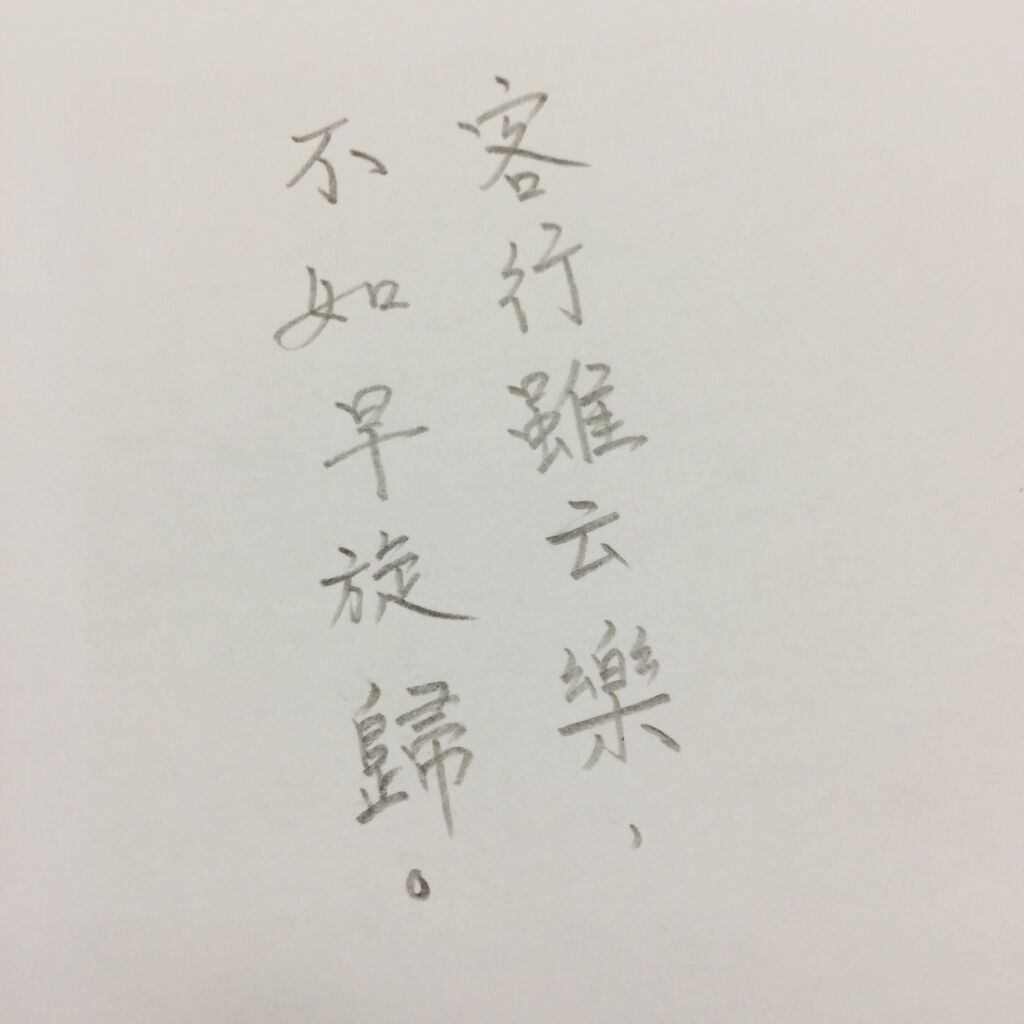 客行雖云樂，
不如早旋歸。